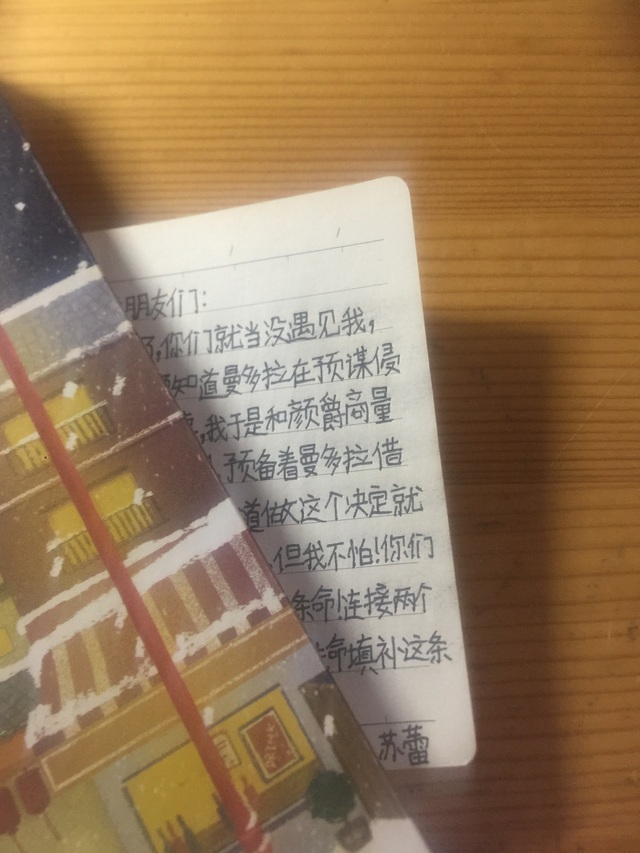 朋友们:
,你们就当没遇见我,
知道曼多拉在预谋侵
,我于是和颜爵商量
,预备着曼多拉借
道做这个决定就
,但我不怕!你们
条命!连接两个
命填补这条
苏蕾